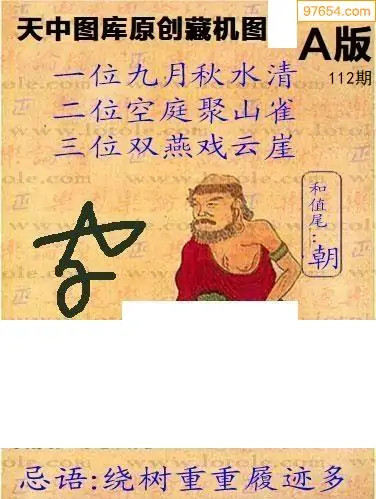 97654.com
天中图库原创藏机图
A版
112期
一位九月秋水清
二位空庭聚山雀
三位双燕戏云崖
和值尾：朝
www.lotole.com
忌语:绕树重重履迹多